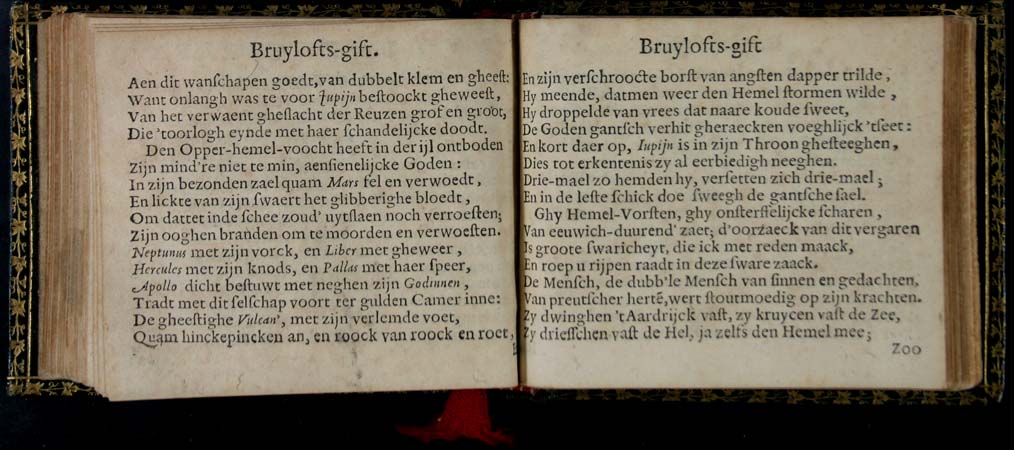 Bruylofts-gift.
Aen dit wanſchapen goedt, van dubbelt klem en gheeſt:
Want onlangh was te voor Iupijn beſtoockt gheweeſt,
Van het verwaent gheſlacht der Reuzen grof en groot,
Die 'toorlogh eynde met haer ſchandelijcke doodt.
Den Opper-hemel-voocht heeft in der ijl ontboden
Zijn mind're niet te min, aenſienelijcke Goden:
In zijn bezonden zael quam Mars fel en verwoedt,
En lickte van zijn ſwaert het glibberighe bloedt,
Om dattet inde ſchee zoud' uytſlaen noch verroeſten;
Zijn ooghen branden om te moorden en verwoeſten.
Neptunus met zijn vorck, en Liber met gheweer,
Hercules met zijn knods, en Pallas met haer ſpeer,
Apollo dicht beſtuwt met neghen zijn Godinnen,
Tradt met dit felſchap voort ter gulden Camer inne:
De gheeſtighe Vulcan', met zijn verlemde voet,
Quam hinckepincken an, en roock van roock en roet,
Bruylofts-gift
En zijn verſchroockte borſt van angſten dapper trilde,
Hy meende, datmen weer den Hemel ſtormen wilde,
Hy droppelde van vrees dat naare koude ſweet,
De Goden gantſch verhit gheraeckten voeghlijck 'tſeet:
En kort daer op, Iupijn is in zijn Throon gheſteeghen,
Dies tot erkentenis zy al eerbiedigh neeghen.
Drie-mael zo hemden hy, verſetten zich drie-mael;
En in de leſte ſchick doe ſweegh de gantſche ſael.
Ghy Hemel-Vorſten, ghy onſterffelijcke ſcharen,
Van eeuwich-duurend' zaet; d'oorzaeck van dit vergaren
Is groote ſwaricheyt, die ick met reden maack,
En roep u rijpen raadt in deze ſware zaack.
De Menſch, de dubb'le Menſch van ſinnen en gedachten,
Van preutſcher hertē, wert ſtoutmoedig op zijn krachten.
Zy dwinghen 't Aardrijck vaſt, zy kruycen vaſt de Zee,
Zy drieſſchen vaſt de Hel, ja zelfs den Hemel mee;
Zoo